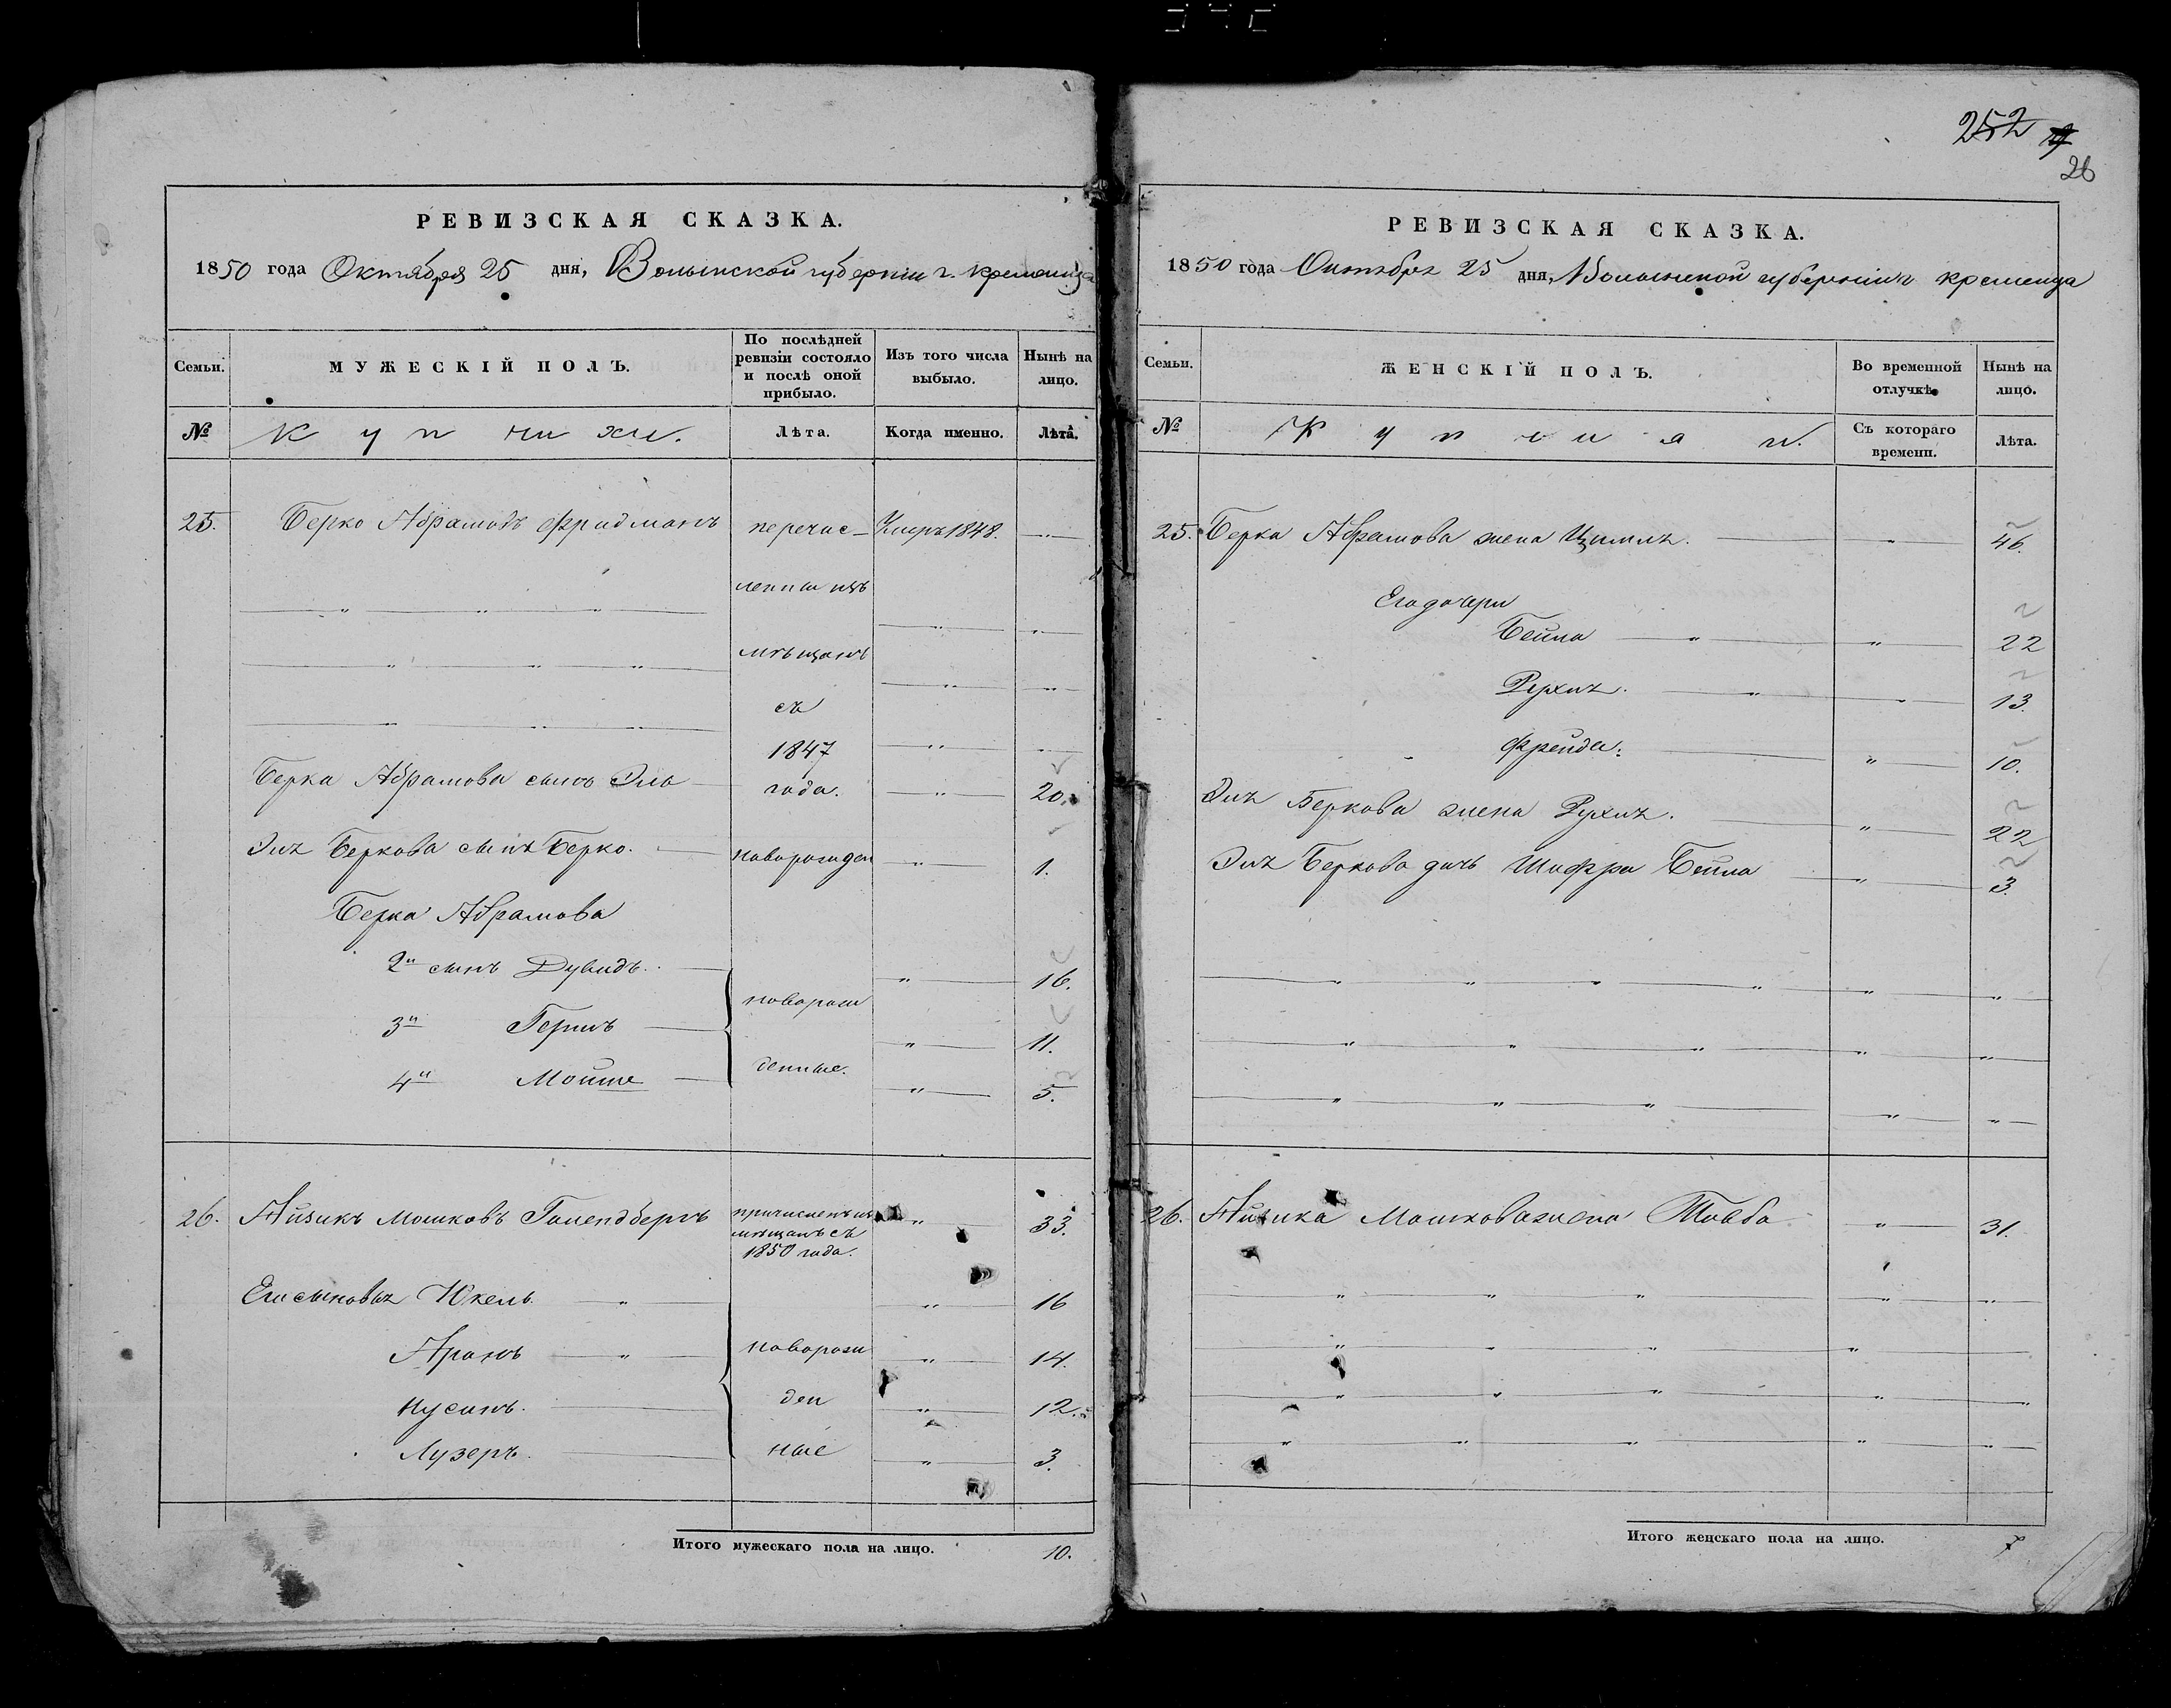 252
26
РЕВИЗСКАЯ СКАЗКА.
1850 года Октября 25 дня, Волынской губернии г. Кременца
Семьи.
МУЖЕСКІЙ ПОЛЪ.
По послѣдней ревизіи состояло и послѣ оной прибыло.
Изъ того числа выбыло.
Нынѣ на лицо.
№
Лѣта.
Когда именно.
Лѣта.
25. Берко Абрамовъ Фридманъ перечис- Умеръ 1848.
ленны изъ
мѣщанъ
съ
1847
Берка Абрамова сынъ Эль года. 20.
Эля Беркова сынъ Берко. новорожден 1.
Берка Абрамова
2й сынъ Дувидъ. 16.
новорож
3й Гершъ 11.
денные.
4й Мойше 5.
26. Айзикъ Мошковъ Голендбергъ причисленъ изъ 33.
мѣщанъ съ
1850 года.
Его сыновья Юкель. 16
Аронъ новорож 14.
Нусинъ. ден 12.
Лузеръ. ные 3.
Итого мужескаго пола на лицо. 10.
РЕВИЗСКАЯ СКАЗКА.
1850 года Октября 25 дня, Волынской губерніи г Кременца
Семьи.
ЖЕНСКІЙ ПОЛЪ.
Во временной отлучкѣ.
Нынѣ на лицо.
№
Съ котораго времени.
Лѣта.
25. Берка Абрамова жена 46.
Его дочери
Бейла 22
Рухля. 13.
Фрейда. 10.
Эля Беркова жена Рухля. 22
Эля Беркова дочь Шифра Бейла 3.
26. Айзика Мошкова жена Товба 31.
Итого женскаго пола на лицо. 7